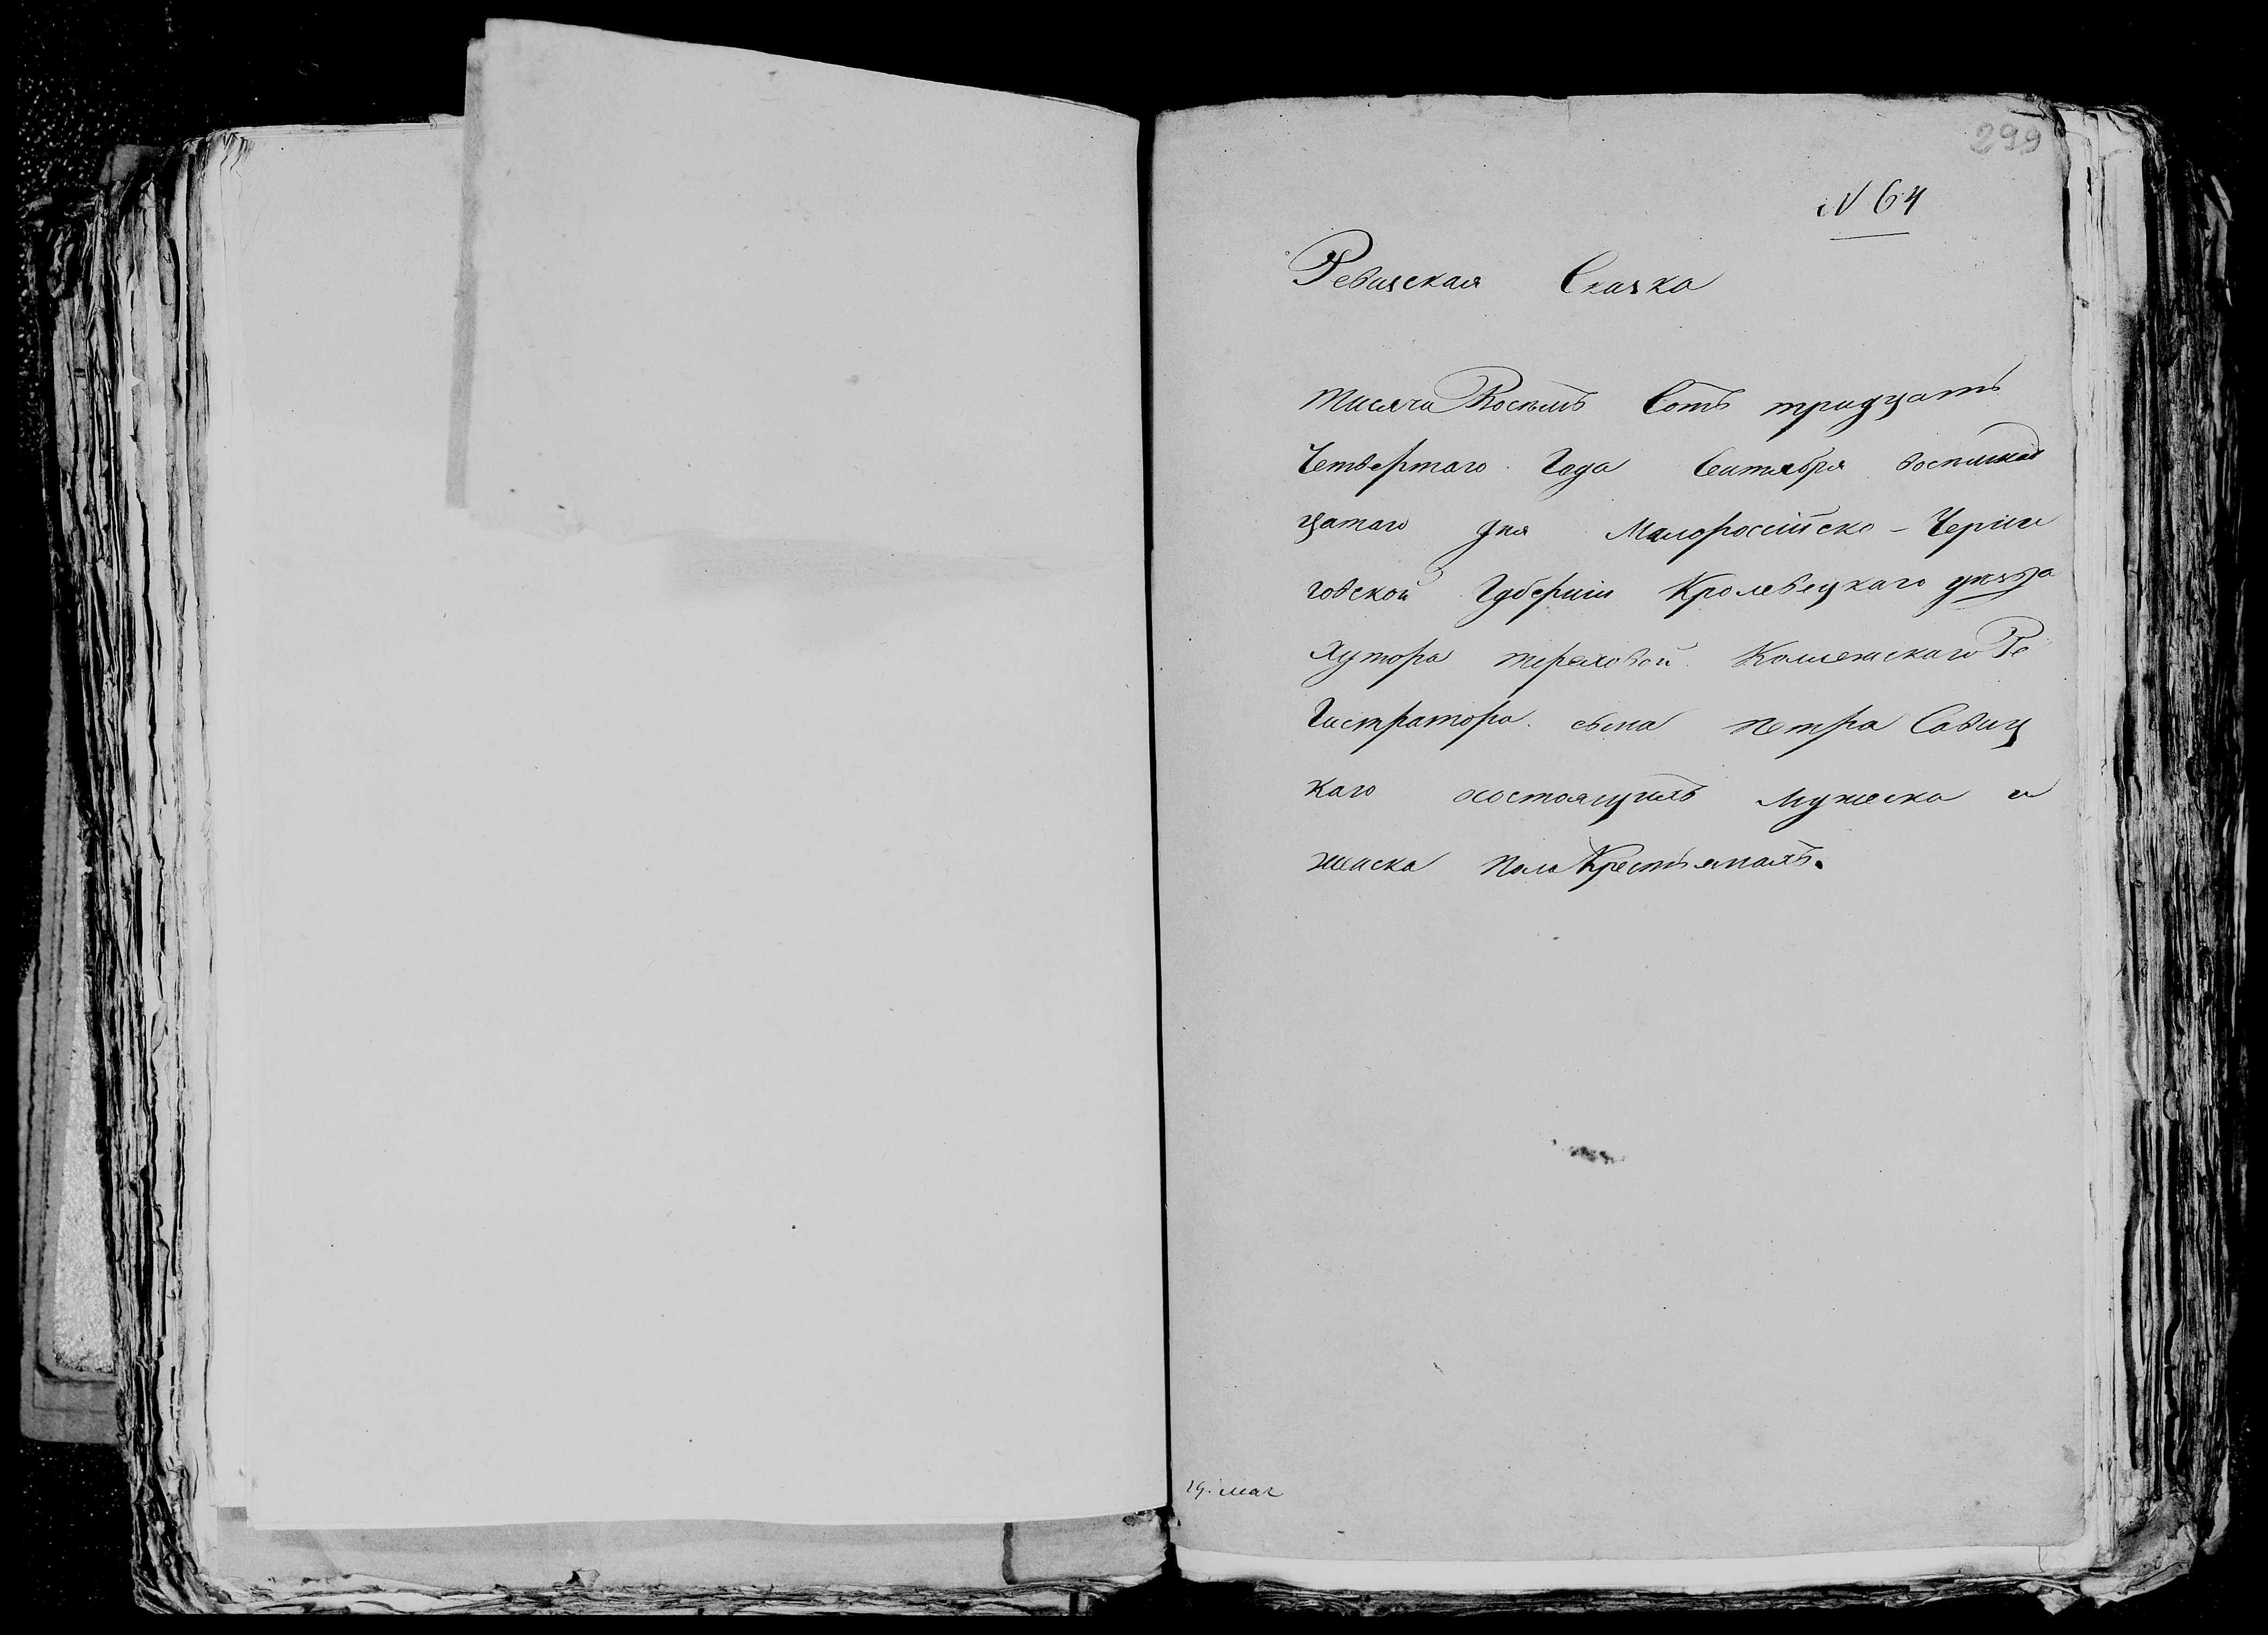 299
N 64
Ревизская Сказка
тисяча Восемъ Сотъ тридцать
Четвертаго Года Сентября воспемнад
цатаго дня Малоросійско-Черни
говской Губерніи Кролевецкаго уезда
Хутора тереховой Коллежскаго Ре
Гистратора сына петра Савиц
каго состоящихъ мужеска и
женска пола Крестьянахъ.